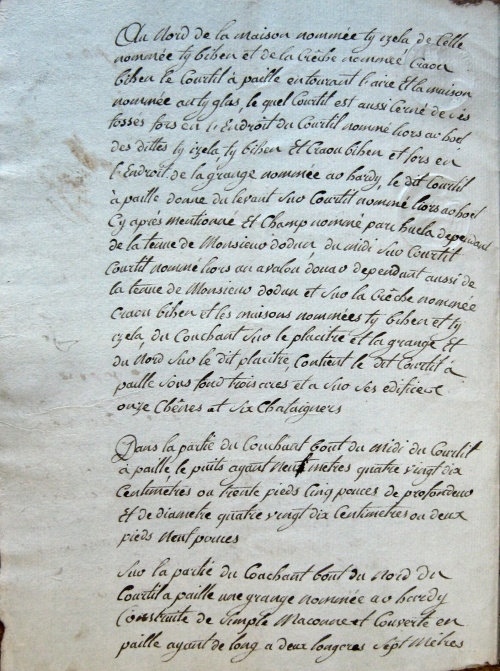 Au Nord de la maison nommée ty izela, de Celle
nommée ty bihen et de la Crêche nommée Craou
bihen le Courtil à paille entourant l'aire Et la maison
nommée an ty glas, le quel Courtil est aussi Cerné de ses
fosses fors en l'Endroit du Courtil nommé liors ao hoel
des dittes ty izela, ty bihen Et Craou bihen et fors en
l'Endroit de la grange nommée ao hardy, le dit Courtil
à paille donne du levant Sur Courtil nommé liors ao hoel
Cy après mentionné Et Champ nommé parc huela dependant
de la tenue de Monsieur dodun, du midi Sur Courtil
Courtil nommé liors an avalou douar dependant aussi de
la tenue de Monsieur dodun et Sur la Crêche nommée
Craou bihen et les maisons nommées ty bihen et ty
izela, du Couchant Sur le placitre et la grange Et
du Nord Sur le dit placitre, Contient le dit Courtil à
paille Sous fond trois ares et a Sur Ses edifices
onze Chênes et Six Chataigners
Dans la partie du Couchant bout du midi du Courtil
à paille le puits ayant Neuf mètres quatre vingt dix
Centimètres ou trente pieds Cinq pouces de profondeur
Et de diametre quatre vingt dix Centimetres ou deux
pieds Neuf pouces
Sur la partie du Couchant bout du Nord du
Courtil a paille une grange nommée ao hardy
Construite de Simple Maconne et Couverte en
paille ayant de long a deux longeres Sept Mètres